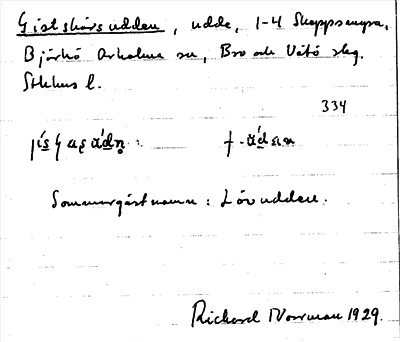 Gistskärsudden, udde, 1-4 Skeppsmyra,
Björkö Arholma sn, Bro och Vätö slg.
Sthlms l.
334
Sommargästnamn: Lövudden.
Richard Norrman 1929.